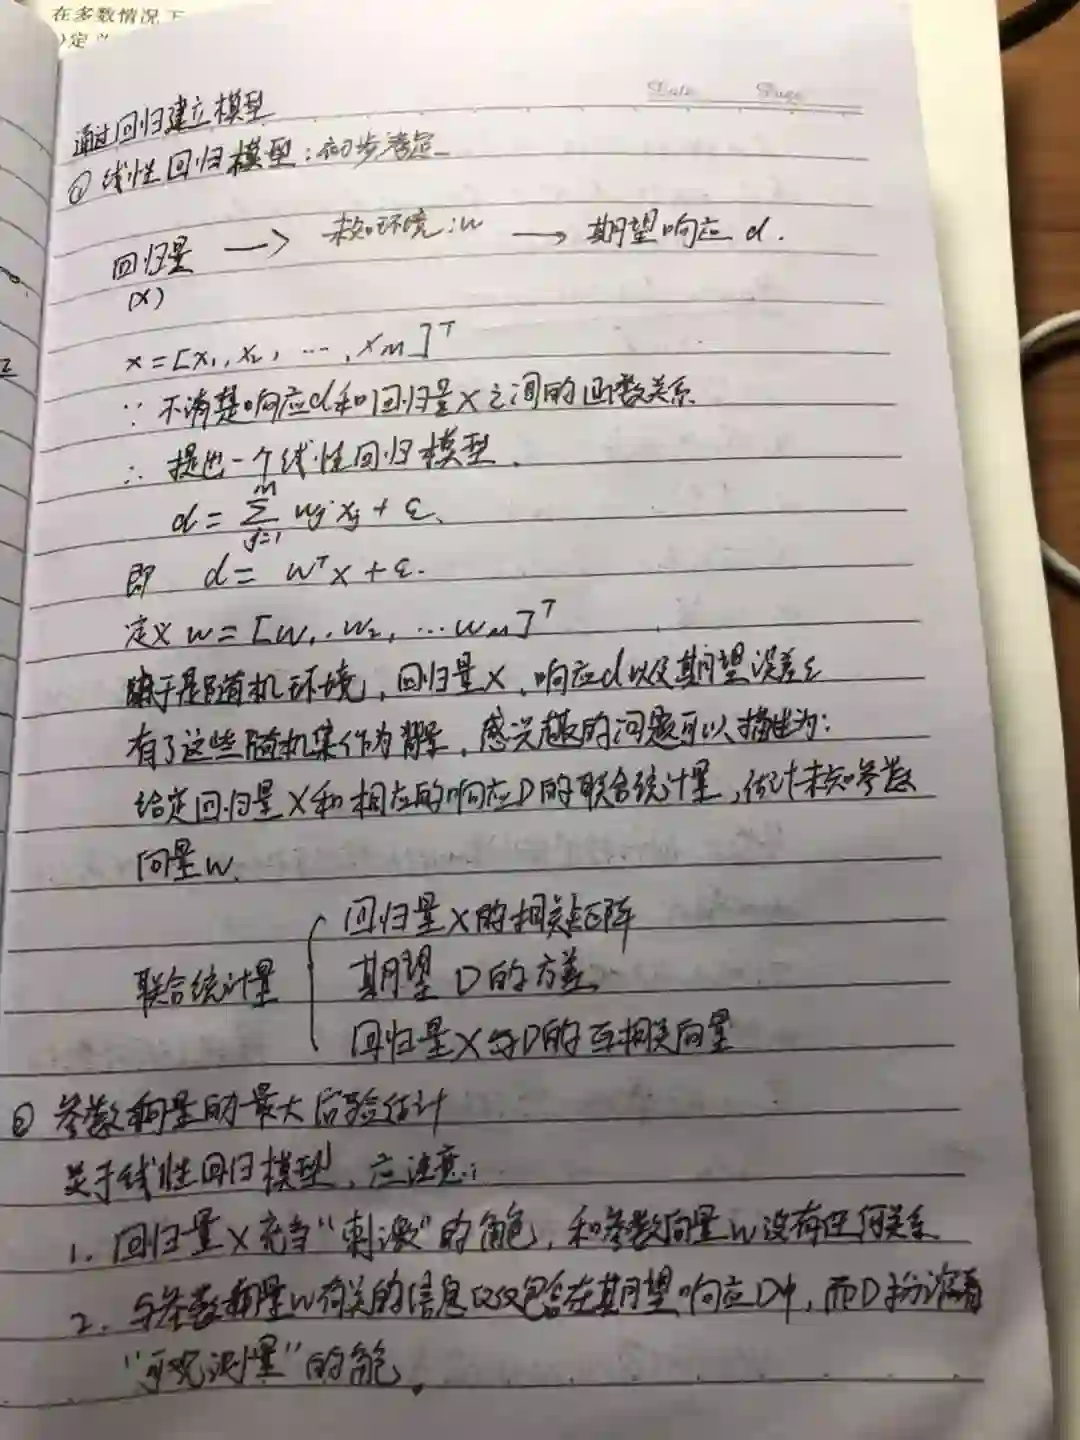 在多数情况下
)定义
Date Page
通过回归建立模型
① 线性回归模型:初步考虑
回归量 → 未知环境:w → 期望响应 d.
(X)
x=[x₁,x₂, … ,x_M]ᵀ
∵ 不清楚响应d和回归量X之间的函数关系
∴ 提出一个线性回归模型.
d = Σ_{j=1}^{M} w_j x_j + ε.
即 d = wᵀx + ε.
定义 w=[w₁,w₂, …w_M]ᵀ
随机环境,回归量X,响应d以及期望误差ε
有了这些随机集作为背景,感兴趣的问题可以描述为:
给定回归量X和相应的响应D的联合统计量,估计未知参数
向量w.
回归量X的相关矩阵
联合统计量 { 期望 D的方差
回归量X与D的互相关向量
② 参数向量的最大后验估计
关于线性回归模型,应注意:
1. 回归量X充当“刺激”的角色,和参数向量w没有任何关系
2. 与参数向量w有关的信息仅仅包含在期望响应D中,而D扮演着
“可观测量”的角色.